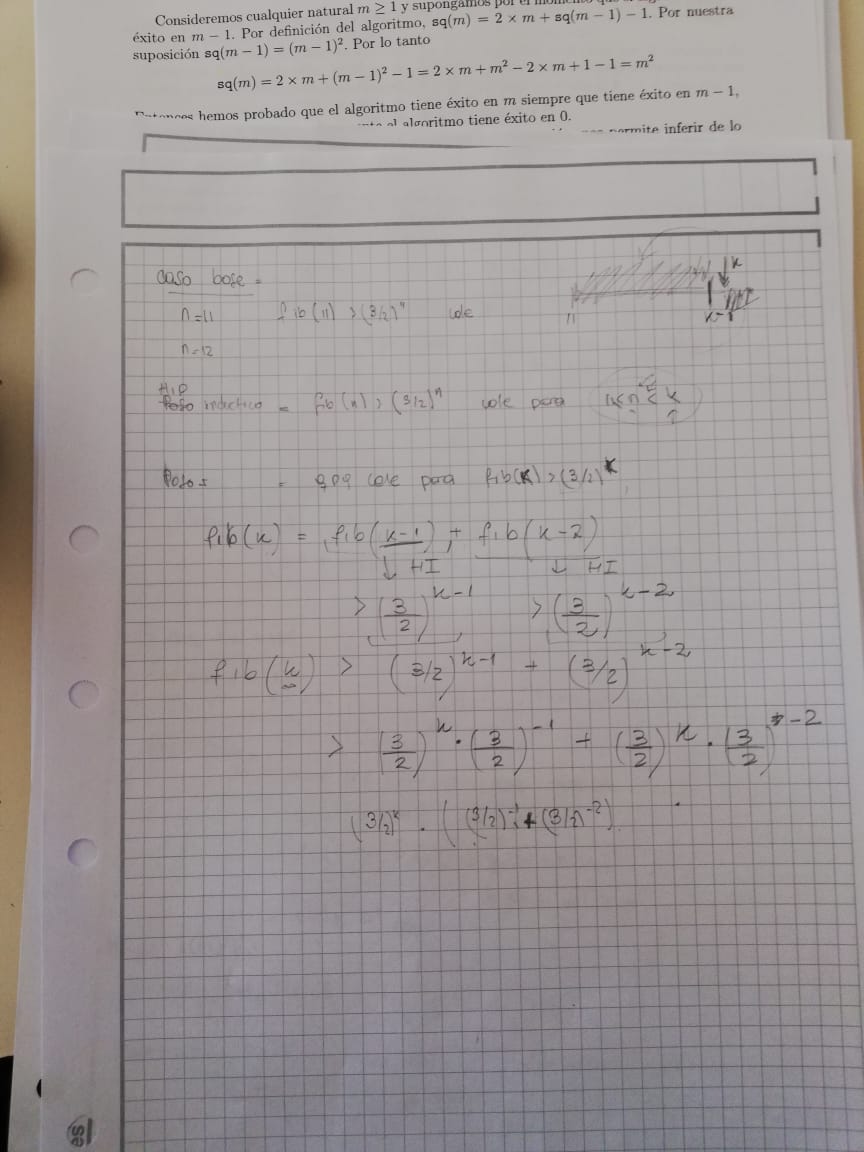 Consideremos cualquier natural m ≥ 1 y supongamos por el
éxito en m − 1. Por definición del algoritmo, sq(m) = 2 × m + sq(m − 1) − 1. Por nuestra
suposición sq(m − 1) = (m − 1)². Por lo tanto
sq(m) = 2 × m + (m − 1)² − 1 = 2 × m + m² − 2 × m + 1 − 1 = m²
hemos probado que el algoritmo tiene éxito en m siempre que tiene éxito en m − 1,
el algoritmo tiene éxito en 0.
permite inferir de lo
Caso base =
n=11 fib(11) > (3/2)^11 vale
n=12
HIP
inductivo = fib(n) > (3/2)^n vale para 11≤n<k
Paso = qpq vale para fib(k) > (3/2)^k
fib(k) = fib(k-1) + fib(k-2)
↓ HI ↓ HI
> (3/2)^k-1 > (3/2)^k-2
fib(k) > (3/2)^k-1 + (3/2)^k-2
> (3/2)^k · (3/2)^-1 + (3/2)^k · (3/2)^-2
(3/2)^k · ((3/2)^-1 + (3/2)^-2)
11
k
k-1
es